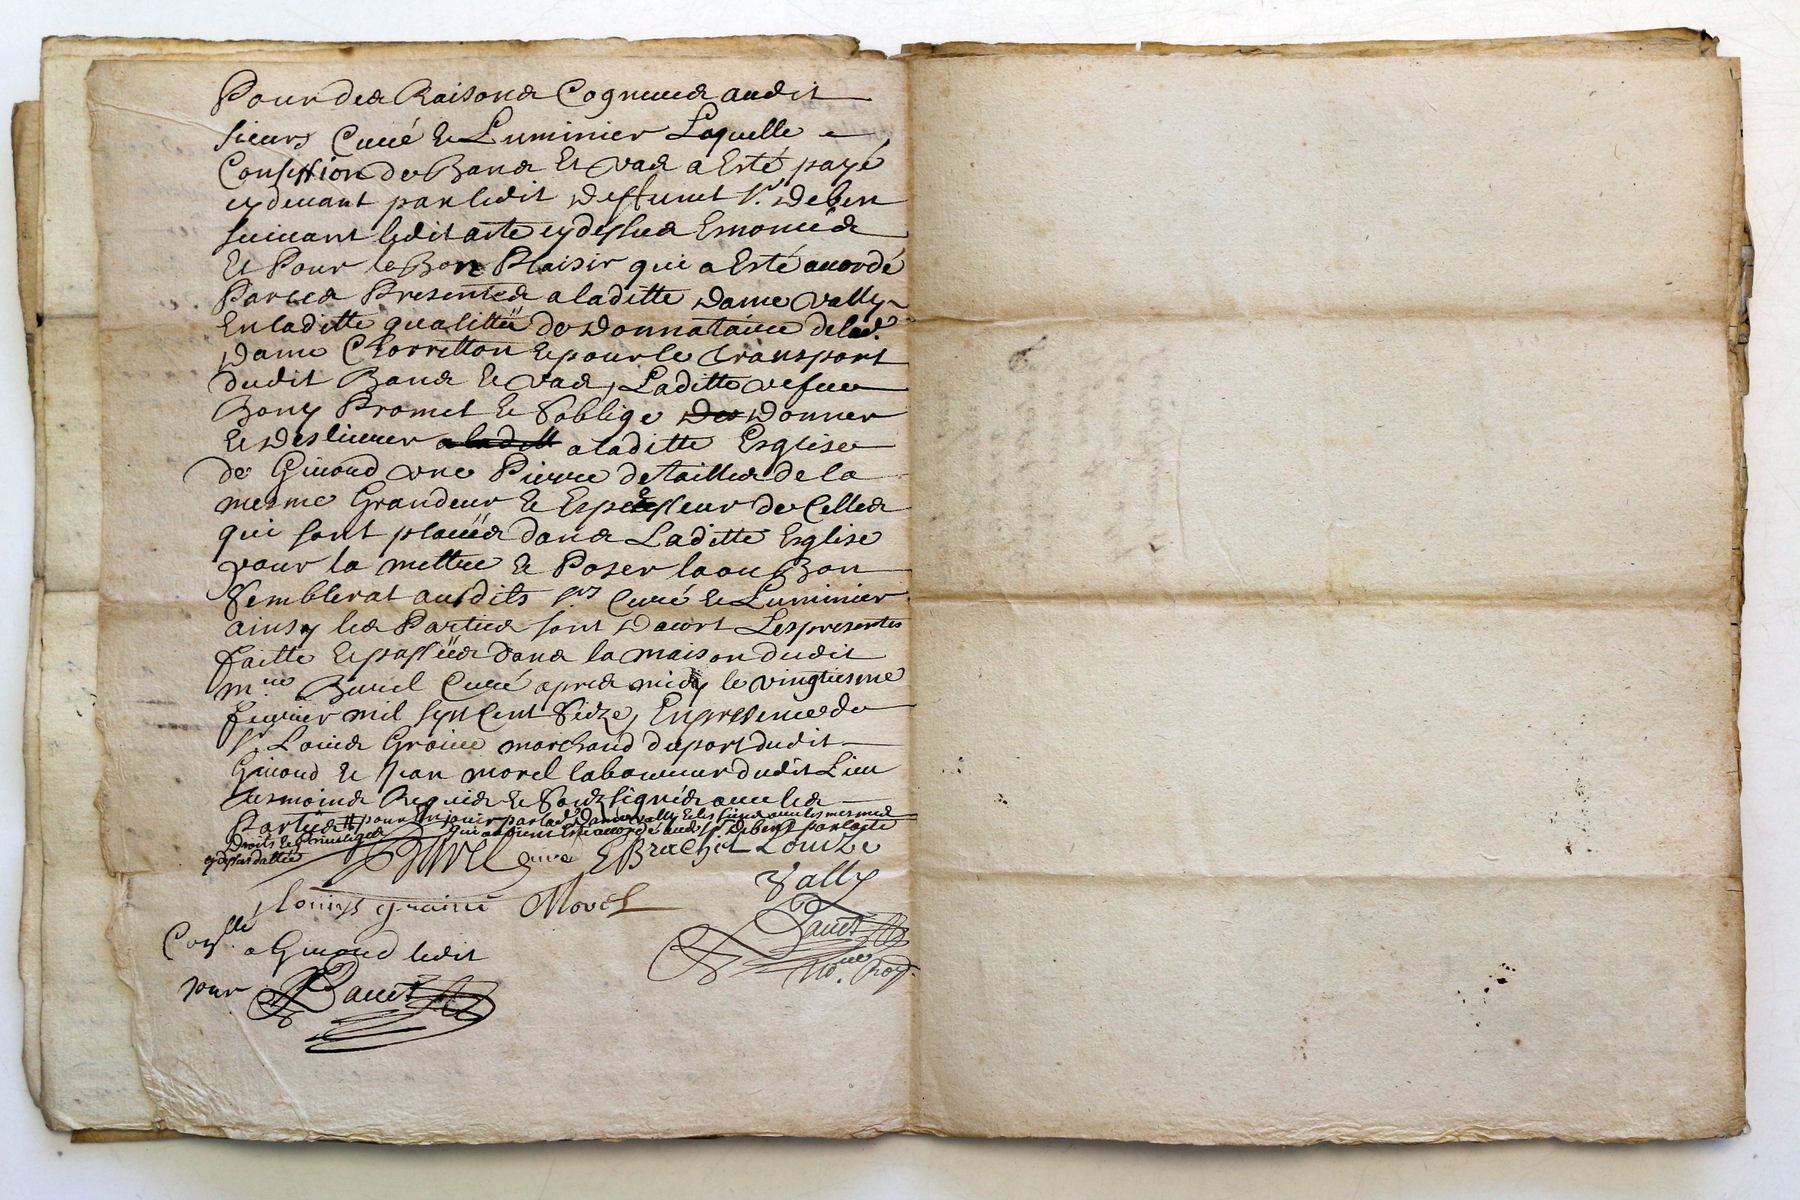 Pour des Raisons Cognues audit
sieurs Curé & Luminier Laquelle
Consession de Banc Et vas a Esté payé
cydevant par ledit deffunct Sr. Deben
suivant ledit acte cydessus Enoncés
Et Pour le Bon Plaisir qui a Esté acordé
Par ces Presentes a laditte dame vally
En laditte qualittée de donnataire de lad.
dame Chorretton & pour le transport
dudit Banc & vas, Laditte vefue
Bony Promet & Soblige de donner
& deslivrer a ladit a laditte Esglise
de Givord une Pierre de tailles de la
mesme Grandeur & Espesseur de Celles
qui sont placées dans Laditte Esglise
pour la mettre & Poser la ou Bon
Semblerat ausdits srs Curé & Luminier
ainsy les Parties sont dacort Les presentes
faitte & passées dans la maison dudit
mre Burel Curé apres midy le vingtiesme
fevrier mil sept Cent Seize, En presence de
sr. Louis Graine marchand du port dudit
Givord & Jean morel laboureur dudit Lieu
tesmoins Requis & Soubsignés avec les
Parties # pour En jouir par lad. dame vally & les siens avec les mesmes
Droits & Privileges qui avoient Esté acordé aud. Sr. Debent par l'acte
cydessus datté
Burel curé E Brachet Louize
Vally
louis graine Morel
Pauet
Nore. Roy.
Con.lle a Givord ledit
jour Pauet